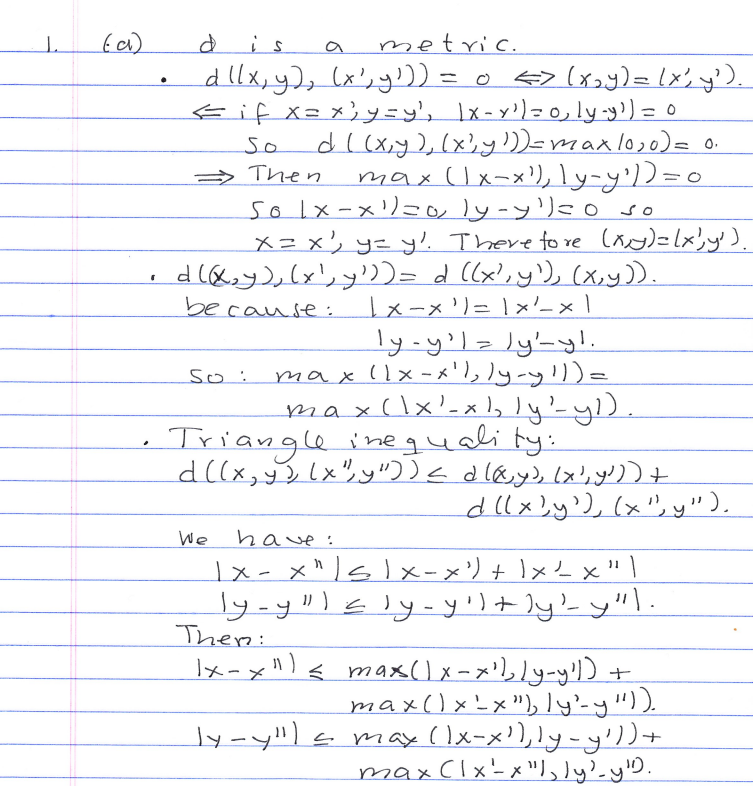 1. (a) d is a metric.
• d((x,y), (x',y')) = 0 ⟺ (x,y) = (x',y').
⇐ if x = x', y = y', |x-x'| = 0, |y-y'| = 0
so d((x,y), (x',y')) = max(0,0) = 0.
⟹ Then max(|x-x'|, |y-y'|) = 0
so |x-x'| = 0, |y-y'| = 0 so
x = x', y = y'. Therefore (x,y) = (x',y').
• d((x,y), (x',y')) = d((x',y'), (x,y)).
because: |x-x'| = |x'-x|
|y-y'| = |y'-y|.
so: max(|x-x'|, |y-y'|) =
max(|x'-x|, |y'-y|).
• Triangle inequality:
d((x,y), (x'',y'')) ≤ d((x,y), (x',y')) +
d((x',y'), (x'',y'').
We have:
|x-x''| ≤ |x-x'| + |x'-x''|
|y-y''| ≤ |y-y'| + |y'-y''|.
Then:
|x-x''| ≤ max(|x-x'|, |y-y'|) +
max(|x'-x''|, |y'-y''|).
|y-y''| ≤ max(|x-x'|, |y-y'|) +
max(|x'-x''|, |y'-y''|).